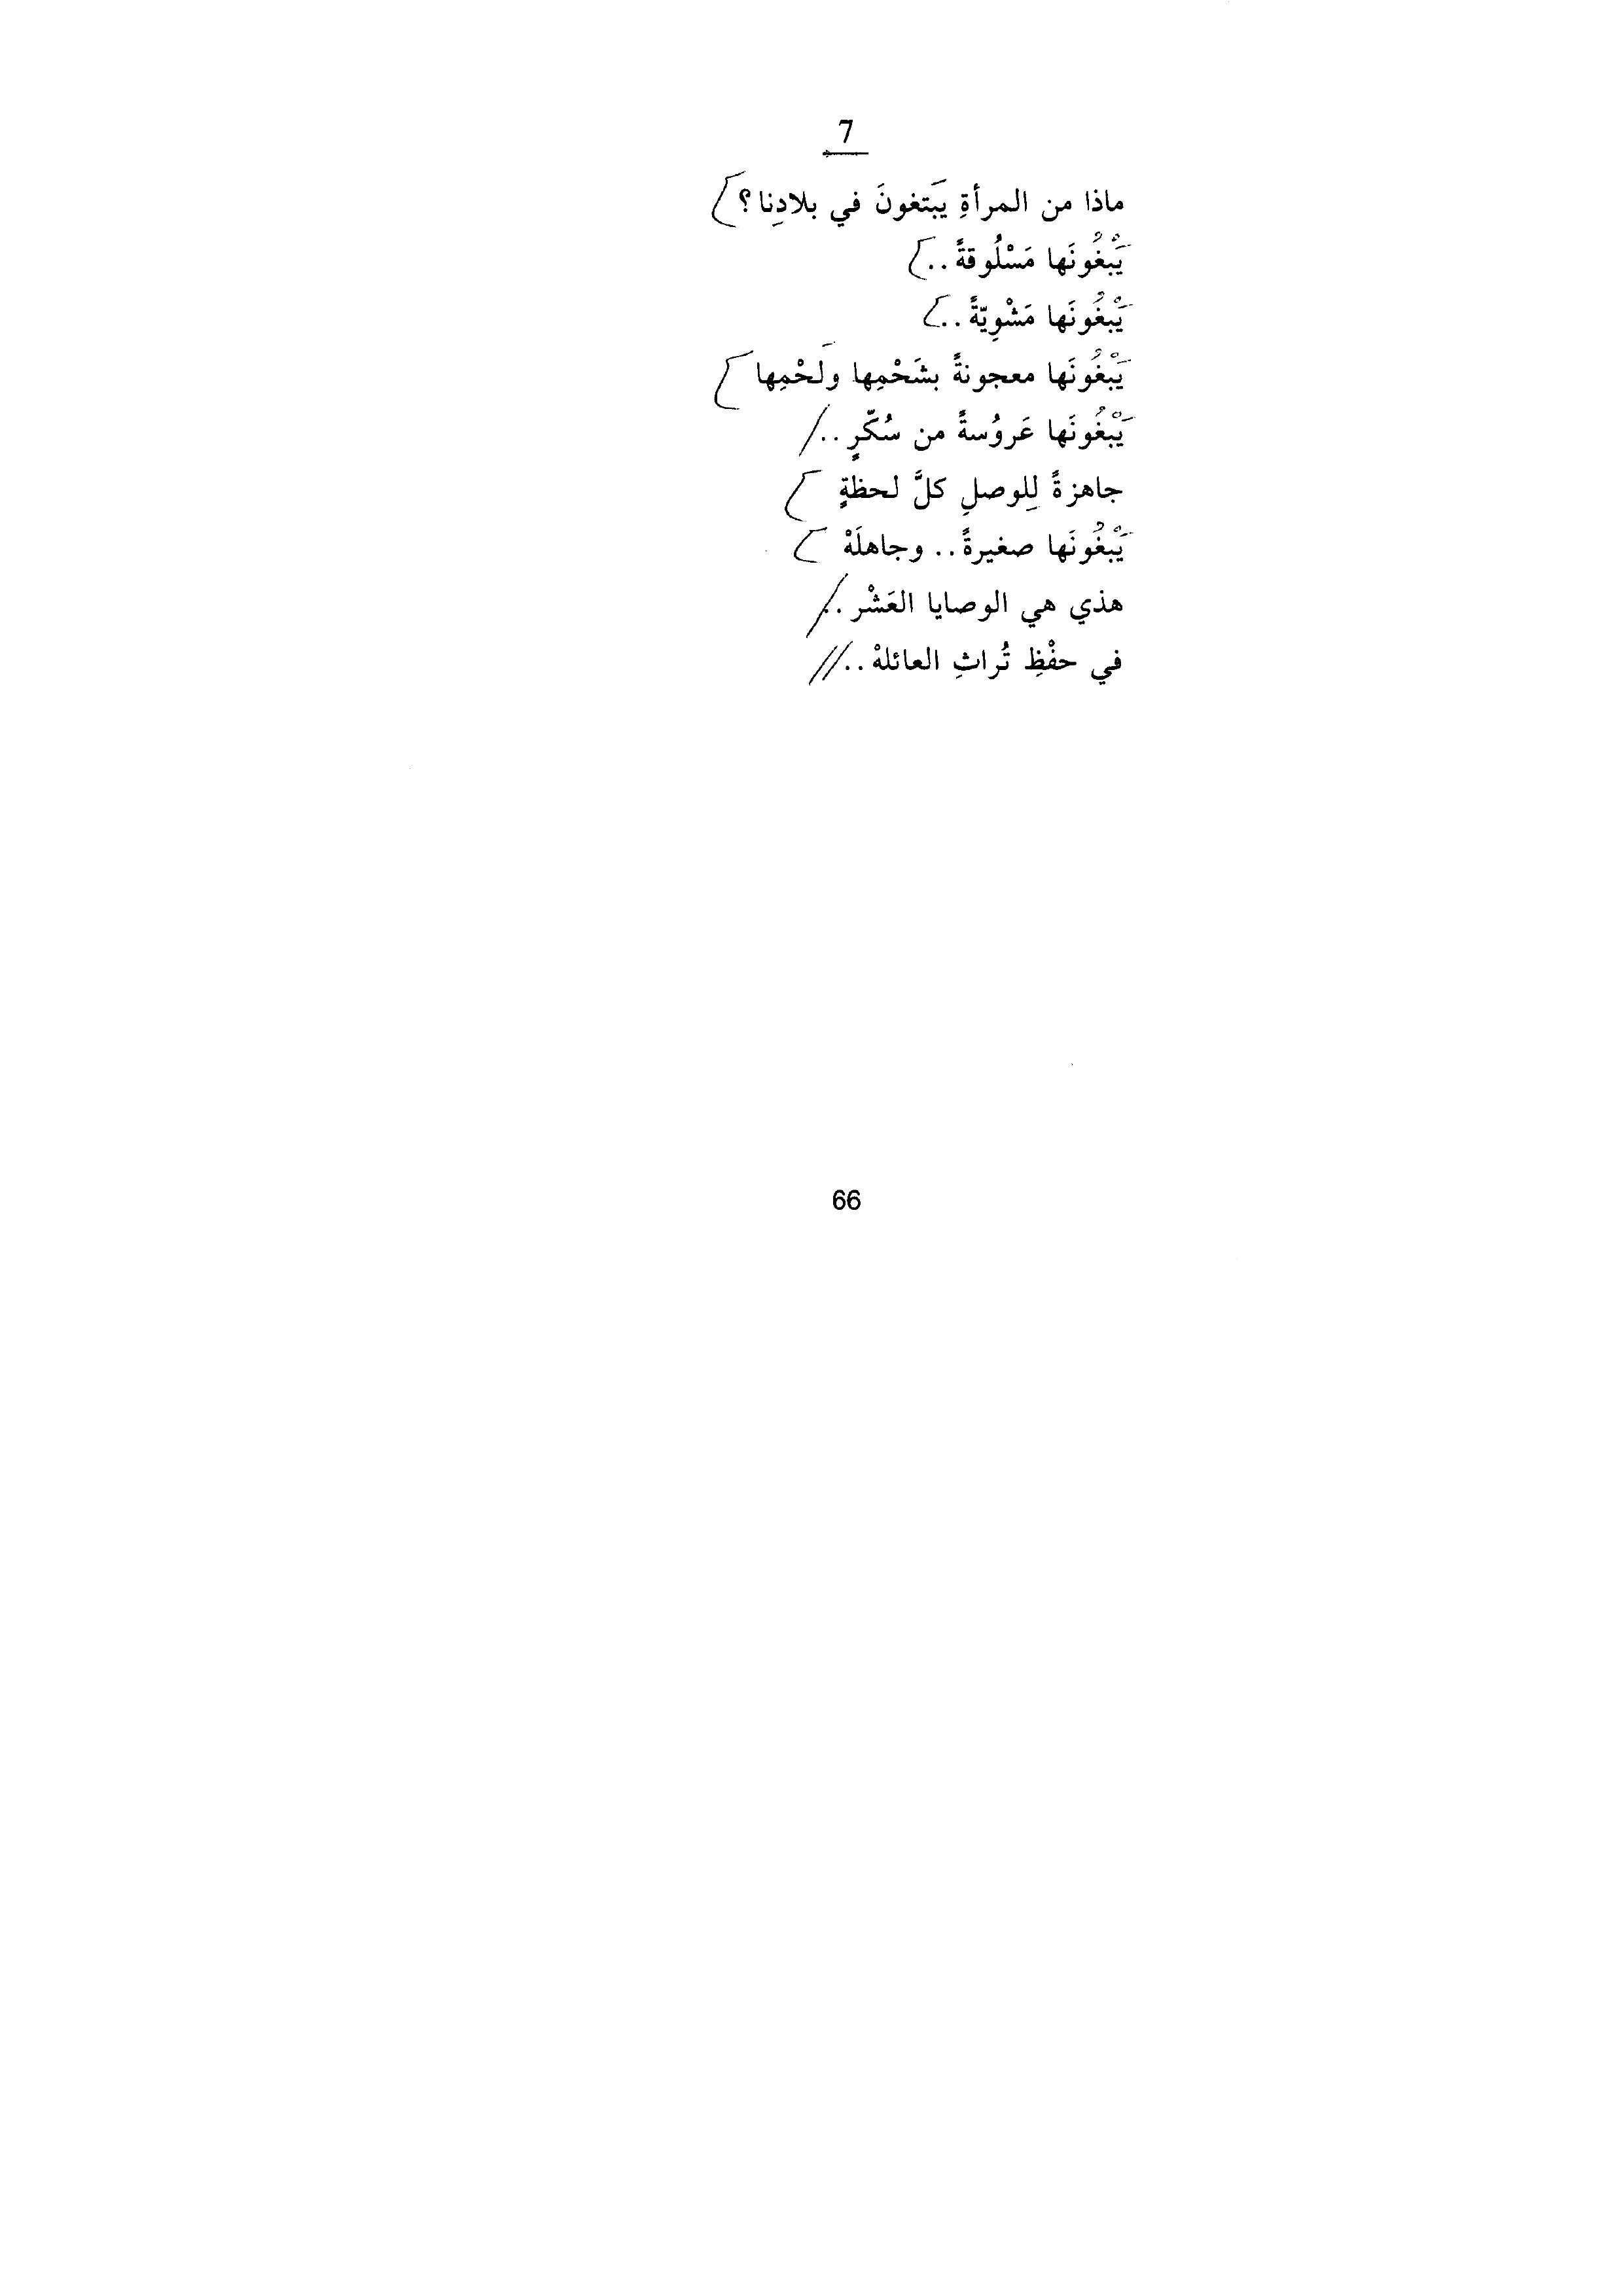 7
ماذا من المرأةِ يَبتغونَ في بلادِنا؟
يَبْغُونَها مَسْلُوقةً..
يَبْغُونَها مَشْوِيّةً..
يَبْغُونَها معجونةً بشَحْمِها ولَحْمِها
يَبْغُونَها عَروُسةً من سُكّرٍ..
جاهزةً لِلوصلِ كلَّ لحظةٍ
يَبْغُونَها صغيرةً.. وجاهلَهْ
هذي هي الوصايا العَشْر..
في حفْظِ تُراثِ العائلهْ..
66